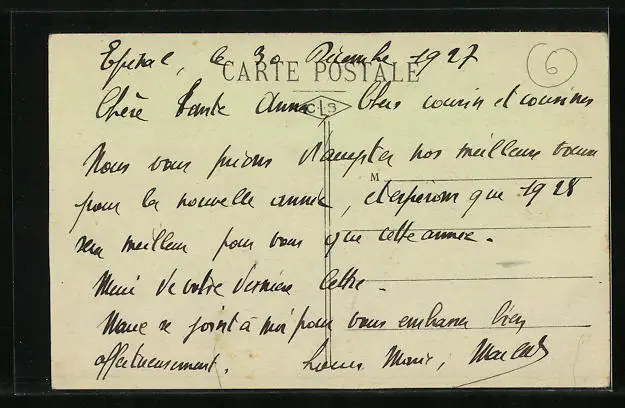 Epinal, le 30 Décembre 1927
CARTE POSTALE
Chère Tante Anna, Chers cousin et cousines
CLB
Nous vous prions d'accepter nos meilleurs voeux
M
pour la nouvelle année, et espérons que 1928
sera meilleur pour vous que cette année.
Merci de votre dernière lettre.
se joint à moi pour vous embrasser bien
affectueusement. Marie,
6